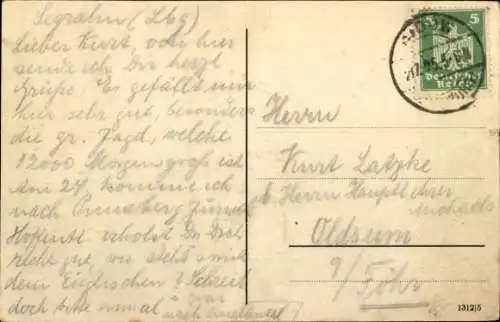 Segrahn (Lbg)
Lieber Kurt, von hier
sende ich Dir herzl.
Grüße. Es gefällt mir
hier sehr gut, besonders
die gr. Jagd, welche
12000 Morgen groß ist
Am 27. komme ich
nach zurück
Hoffentl. erholst Du Dich
recht gut, wie steht's mit
dem Englischen? Schreib
doch bitte einmal
nach
5
Deutsches
Reich
Herrn
Kurt Latzke
b. Herrn Hauptlehrer
Michaels
Oldsum
a/Föhr
1312/5